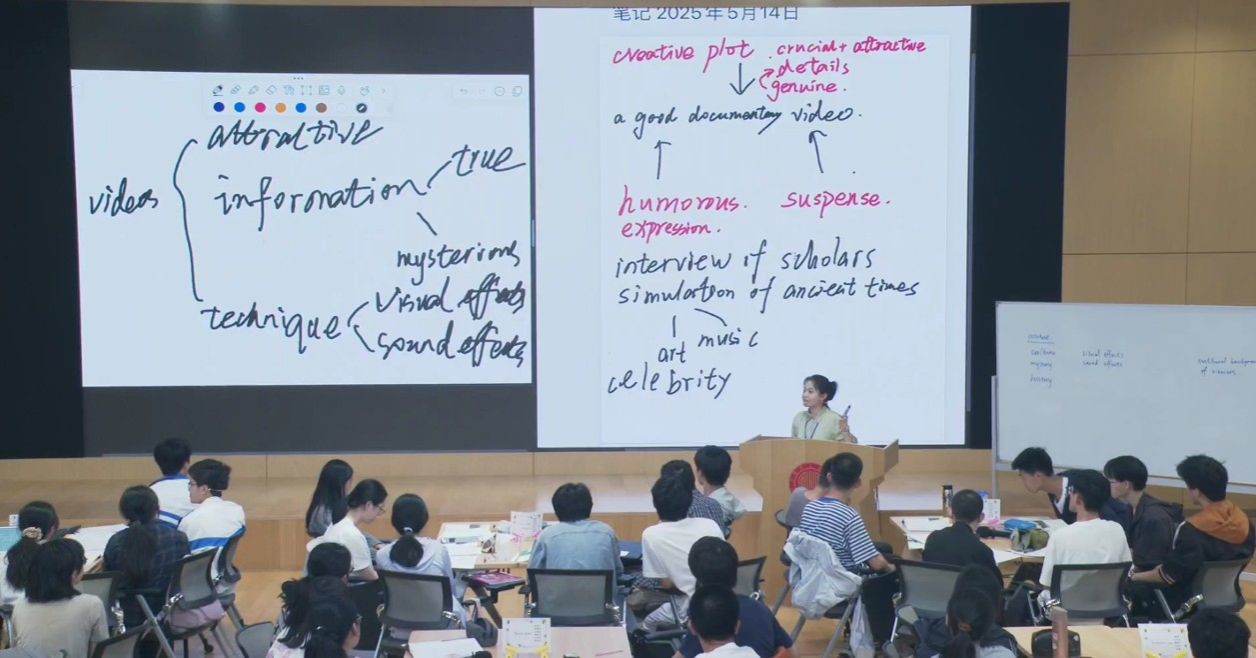 attractive
videos
information
true
mysterious
technique
visual effects
sound effects
笔记 2025年5月14日
creative plot
crucial + attractive
details
genuine.
a good documentary video.
humorous.
expression.
suspense.
interview of scholars
simulation of ancient times
art
music
celebrity
visual effects
mystery
sound effects
history
cultural background
of viewers